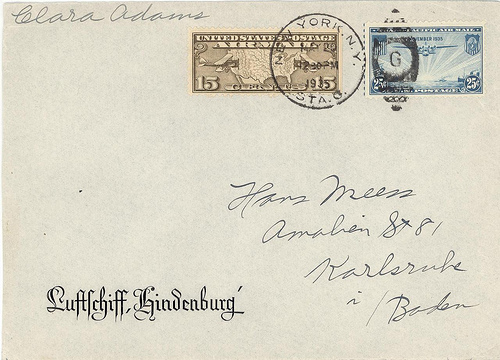 Clara Adams
UNITED STATES POSTAGE
AIR MAIL
15 15
NEW YORK, N.Y.
12 30 PM
1935
STA. G.
G
NOVEMBER 1935
25¢ 25¢
POSTAGE
Hans Meess
Amalien St 81
Karlsruhe
i/Baden
Luftschiff „Hindenburg"